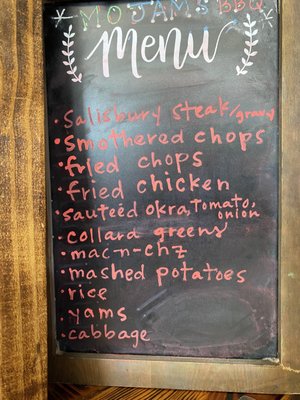 MO JAMS BBQ
Menu
• Salisbury steak/gravy
• smothered chops
• fried chops
• fried chicken
• sauteéd okra, tomato, onion
• collard greens
• mac-n-chz
• mashed potatoes
• rice
• yams
• cabbage